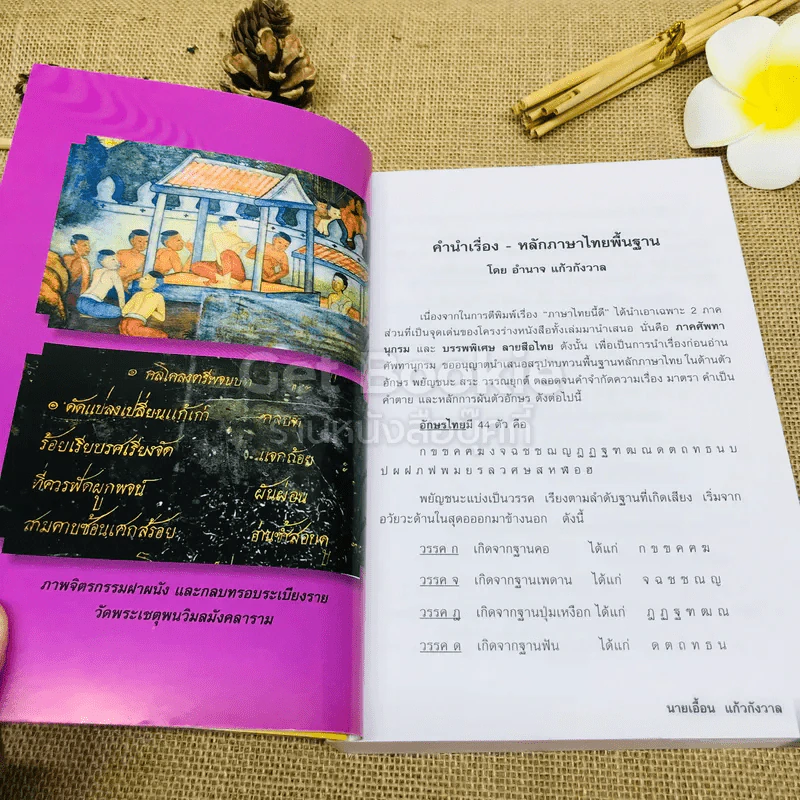 ๑ กลโคลงตรีพจนบท
๑ คัดแปลงเปลี่ยนแก้เก่า กลบท
ร้อยเรียบรศเรียงจัด แจกถ้อย
ที่ควรพัดผูกพจน์ ผันผ่อน
สามคาบซ้อนเคกสร้อย อ่านซ้ำสอน
ภาพจิตรกรรมฝาผนัง และกลบทรอบระเบียงราย
วัดพระเชตุพนวิมลมังคลาราม
คำนำเรื่อง - หลักภาษาไทยพื้นฐาน
โดย อำนาจ แก้วกังวาล
เนื่องจากในการตีพิมพ์เรื่อง "ภาษาไทยนี้ดี" ได้นำเอาเฉพาะ 2 ภาค
ส่วนที่เป็นจุดเด่นของโครงร่างหนังสือทั้งเล่มมานำเสนอ นั่นคือ ภาคศัพทา
นุกรม และ บรรพพิเศษ ลายสือไทย ดังนั้น เพื่อเป็นการนำเรื่องก่อนอ่าน
ศัพทานุกรม ขออนุญาตนำเสนอสาระบทวนพื้นฐานหลักภาษาไทย ในด้านตัว
อักษร พยัญชนะ สระ วรรณยุกต์ ตลอดจนคำจำกัดความเรื่อง มาตรา คำเป็น
คำตาย และหลักการผันตัวอักษร ดังต่อไปนี้
อักษรไทยมี 44 ตัว คือ
ก ข ฃ ค ฅ ฆ ง จ ฉ ช ซ ฌ ญ ฎ ฏ ฐ ฑ ฒ ณ ด ต ถ ท ธ น บ
ป ผ ฝ ภ ฟ พ ม ย ร ล ว ศ ษ ส ห ฬ อ ฮ
พยัญชนะแบ่งเป็นวรรค เรียงตามลำดับฐานที่เกิดเสียง เริ่มจาก
อวัยวะด้านในสุดอออกมาข้างนอก ดังนี้
วรรค ก เกิดจากฐานคอ ได้แก่ ก ข ฃ ค ฅ ฆ
วรรค จ เกิดจากฐานเพดาน ได้แก่ จ ฉ ช ซ ฌ ญ
วรรค ฎ เกิดจากฐานปุ่มเหงือก ได้แก่ ฎ ฏ ฐ ฑ ฒ ณ
วรรค ด เกิดจากฐานฟัน ได้แก่ ด ต ถ ท ธ น
นายเอื้อน แก้วกังวาล
ร้านหนังสือบุ๊คกี้